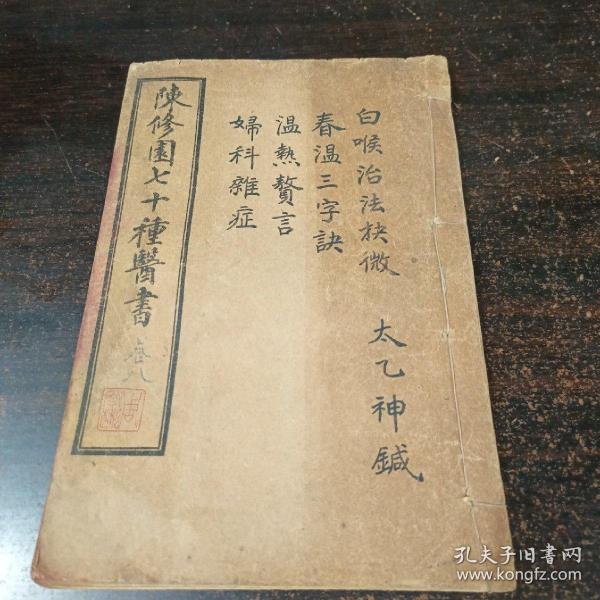 白喉治法抉微
太乙神鍼
春溫三字訣
溫熱贅言
婦科雜症
陳修園七十種醫書
孔夫子旧書网
www.kongfz.com